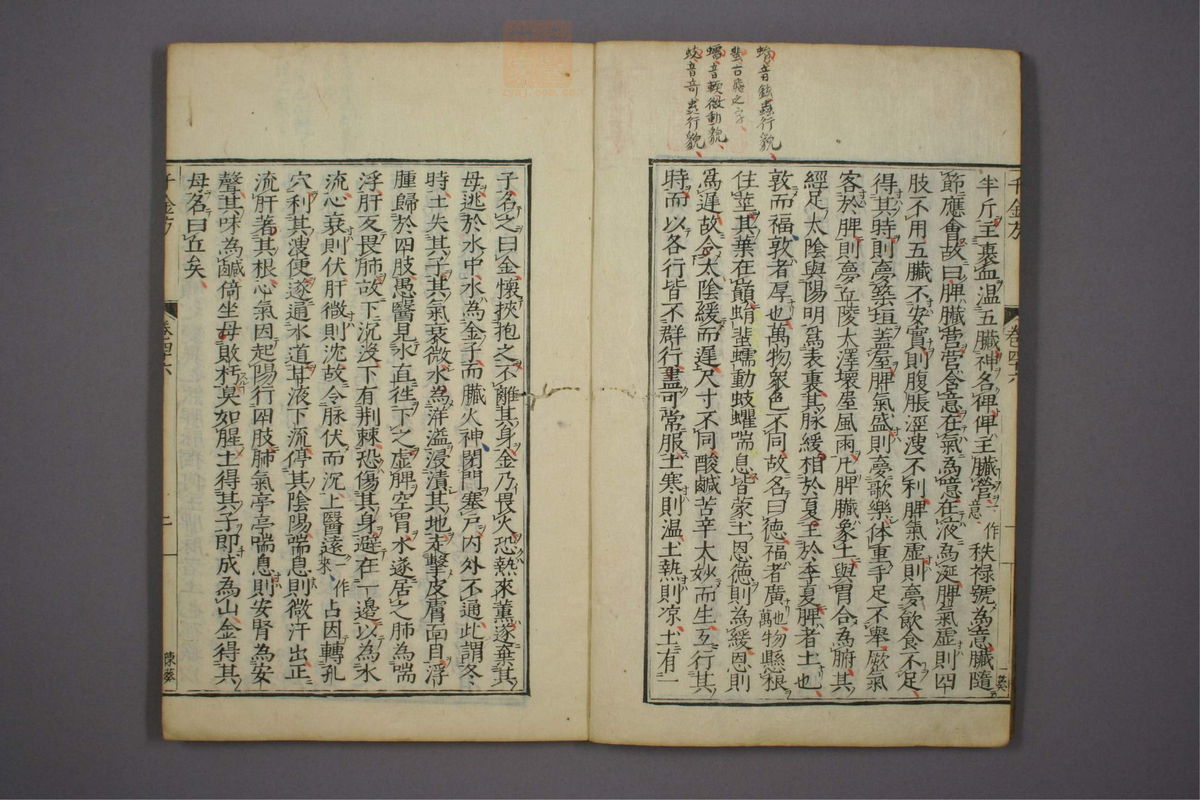 蜎音鉉蟲行貌
蜚古飛之字
蠕音軟微動貌
蚑音奇虫行貌
半斤主裹血温五臟神名俾俾主臟營一作意秩禄號為意臟隨
節應會故曰脾臟营营舍意在氣為噫在液為涎脾氣虛則四
肢不用五臟不安實則腹脹涇溲不利脾氣虛則夢飲食不足
得其時則夢築垣蓋屋脾氣盛則夢歌樂体重手足不舉厥氣
客於脾則夢丘陵大澤壞屋風雨凡脾臟象土與胃合為腑其
經足太陰與陽明為表裏其脉緩相於夏王於季夏脾者土也
敦而福敦者厚也萬物衆色不同故名曰徳福者廣也萬物懸根
住莖其葉在巔蜎蜚蠕動蚑蠷喘息皆蒙土恩徳則為緩恩則
為遲故令太陰緩而遲尺寸不同酸鹹苦辛大妙而生互行其
時而以各行皆不群行盡可常服土寒則温土熱則凉土有一
千金方
卷四十六
子名之曰金懷挾抱之不離其身金乃畏火恐熱來薰遂棄其
母逃於水中水為金子而臟火神閉門塞戶内外不通此謂冬
時土失其子其氣衰微水為洋溢浸漬其地走擊皮膚面目浮
腫歸於四肢愚醫見水直往下之虛脾空胃水遂居之肺為喘
浮肝反畏肺故下沉没下有荆棘恐傷其身避在一邊以為水
流心衰則伏肝微則沈故令脉伏而沉上醫遠一作來占因轉孔
穴利其溲便遂通水道甘液下流停其陰陽喘息則微汗出正
流肝著其根心氣因起陽行四肢肺氣亭亭喘息則安腎為安
聲其味為鹹倚坐母敗朽臭如腥土得其子即成為山金得其
母名曰丘矣
千金方
卷四十六